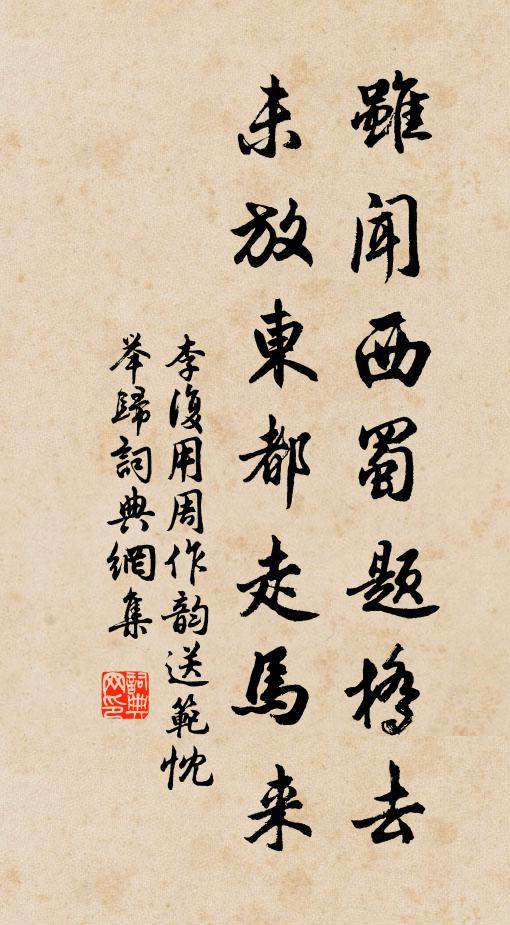 雖闻西蜀题橋去
未放東都走馬来
李復用周作韵送範忱
举歸詞典網集
詞典网印